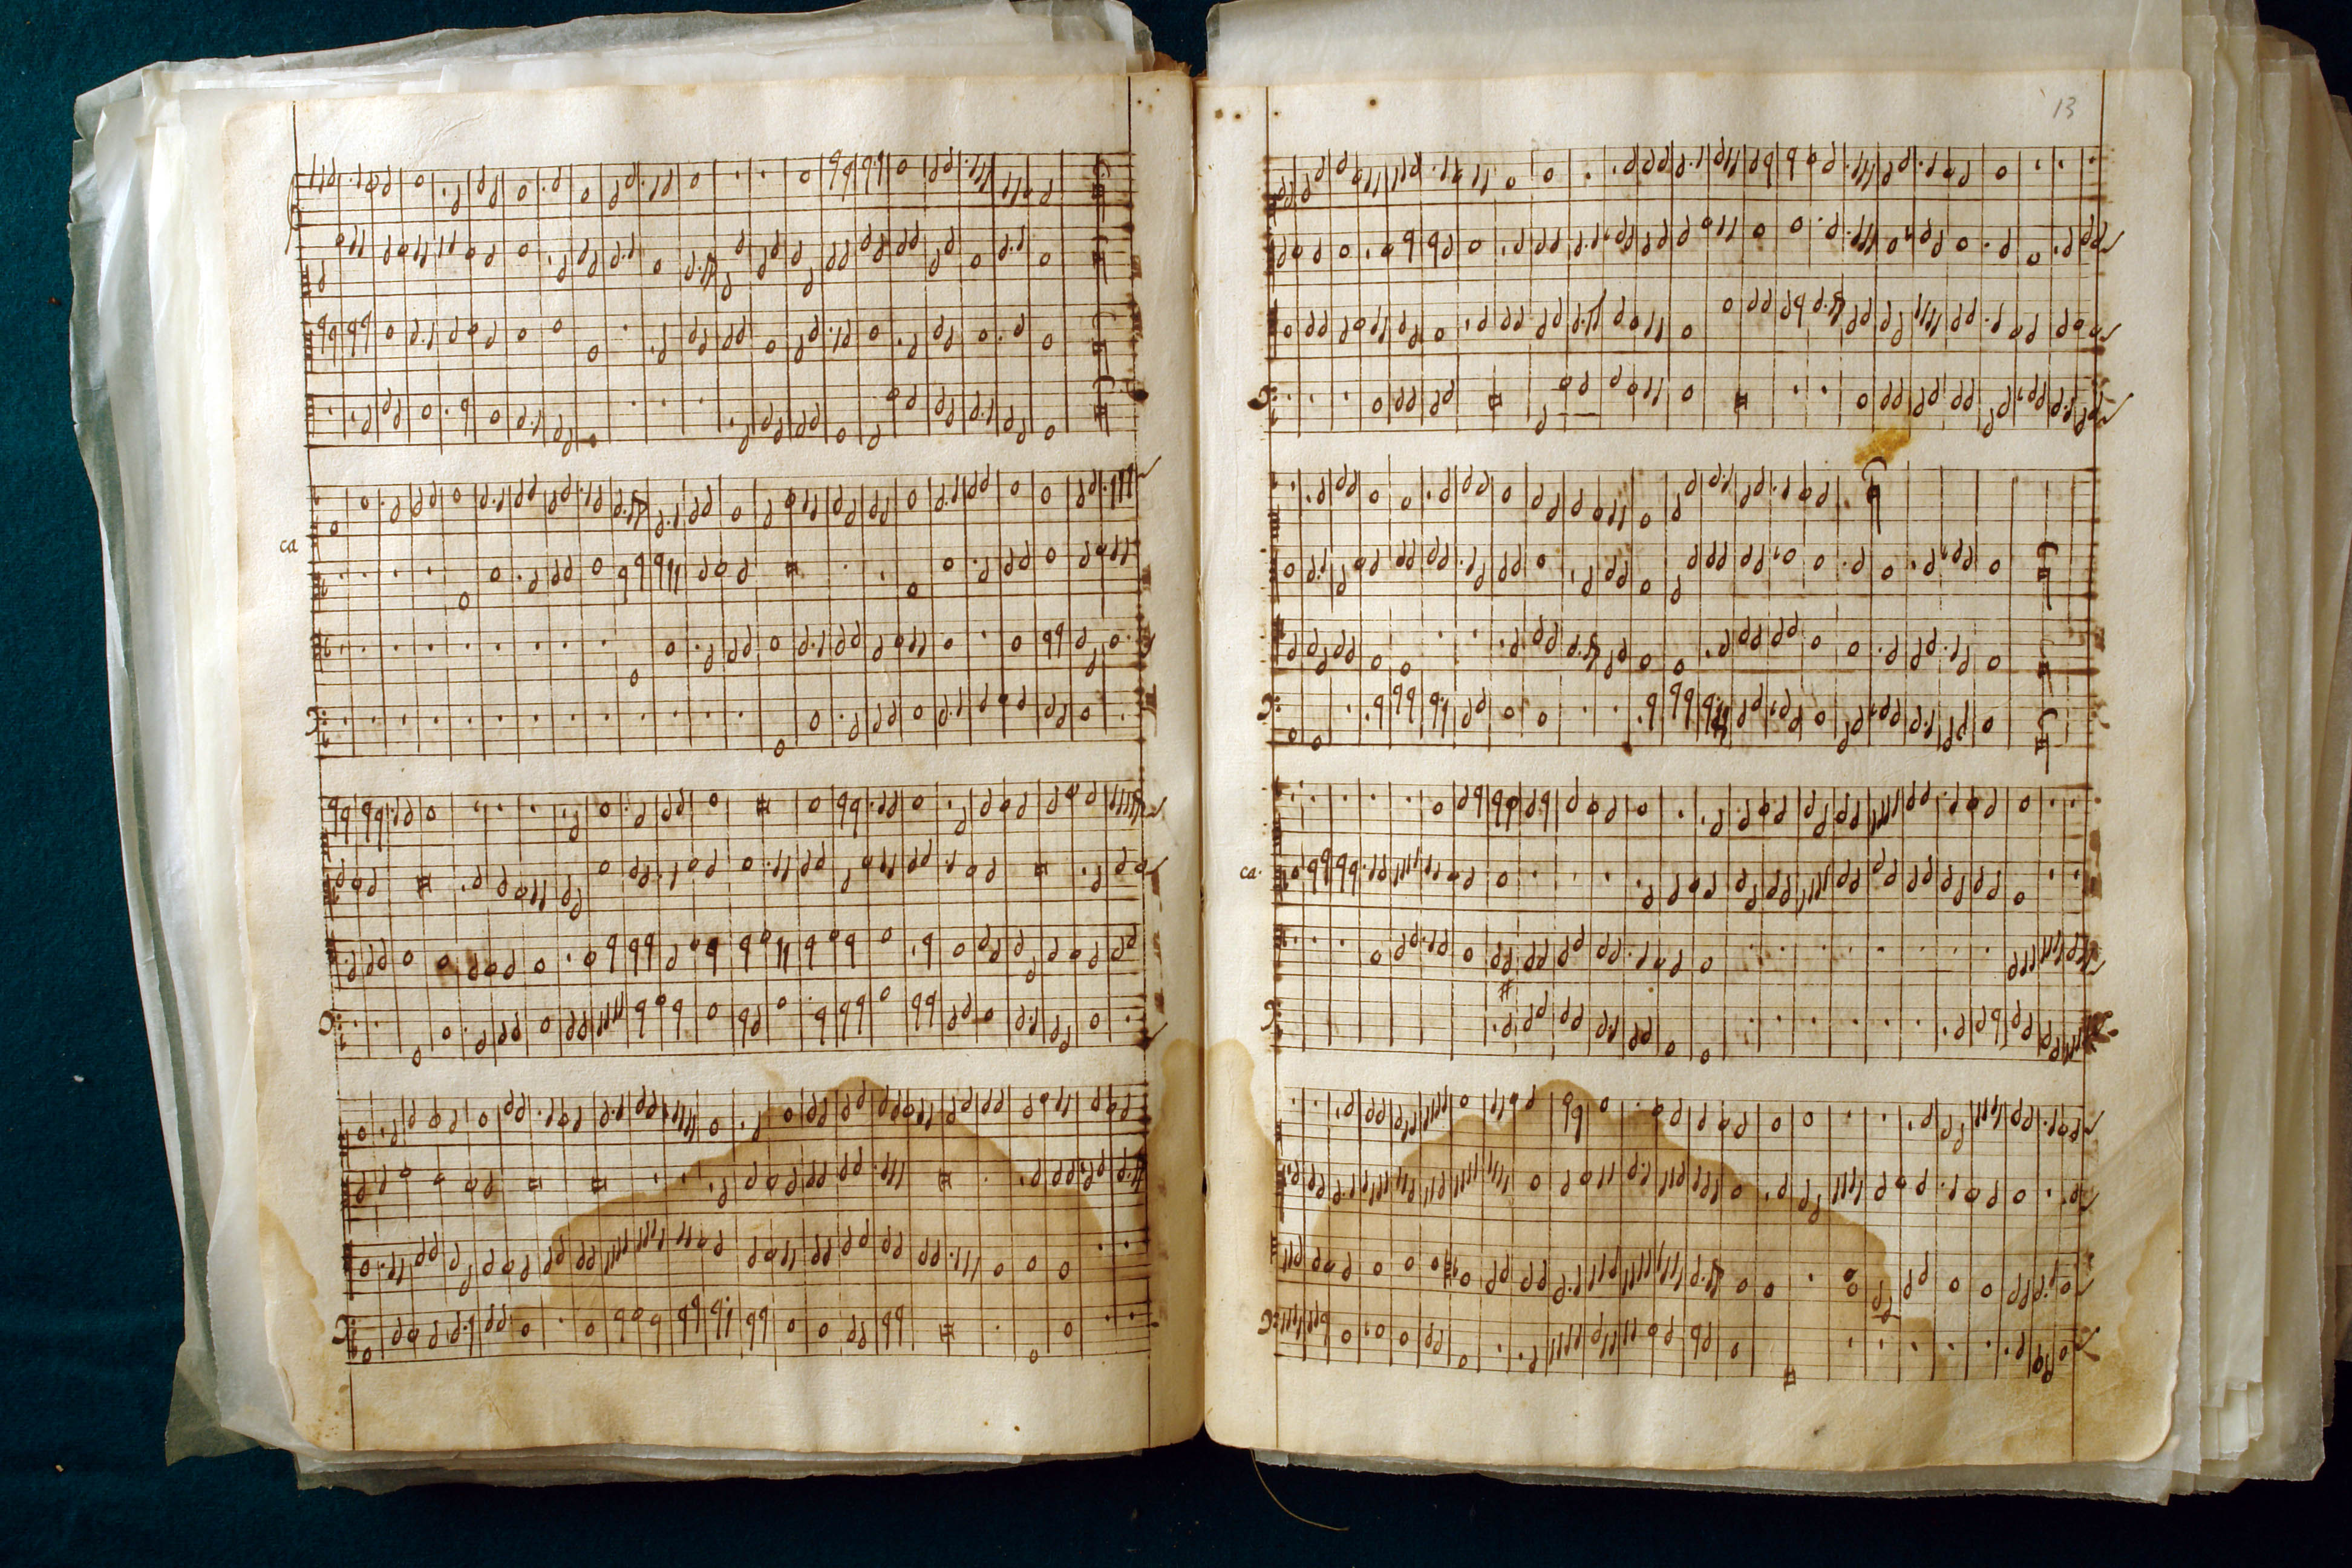 ca
13
ca.